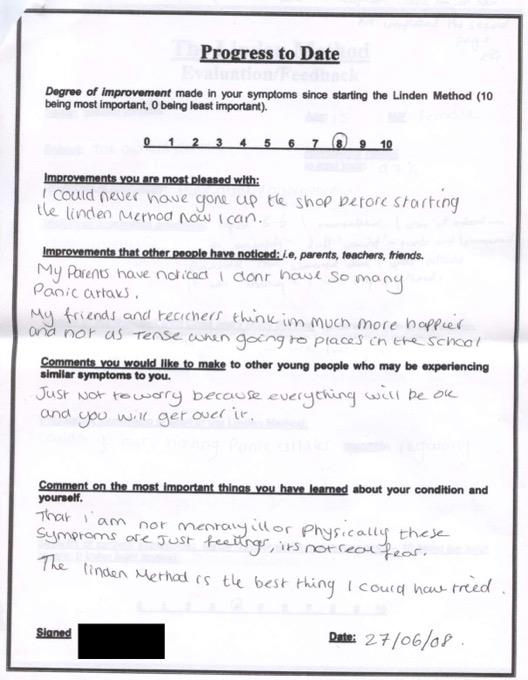 Progress to Date
Degree of improvement made in your symptoms since starting the Linden Method (10
being most important, 0 being least important).
0 1 2 3 4 5 6 7 8 9 10
Improvements you are most pleased with:
I could never have gone up the shop before starting
the linden Method now I can.
Improvements that other people have noticed: i.e, parents, teachers, friends.
My Parents have noticed I dont have so many
Panic attaks.
My friends and teachers think im much more happier
and not as tense when going to places in the school
Comments you would like to make to other young people who may be experiencing
similar symptoms to you.
Just Not to worry because everything will be ok
and you will get over it.
Comment on the most important things you have learned about your condition and
yourself.
That i am not mentaly ill or Physically these
Symptoms are Just feelings, its not real fear.
The linden Method is the best thing I could have tried.
Signed
Date: 27/06/08.